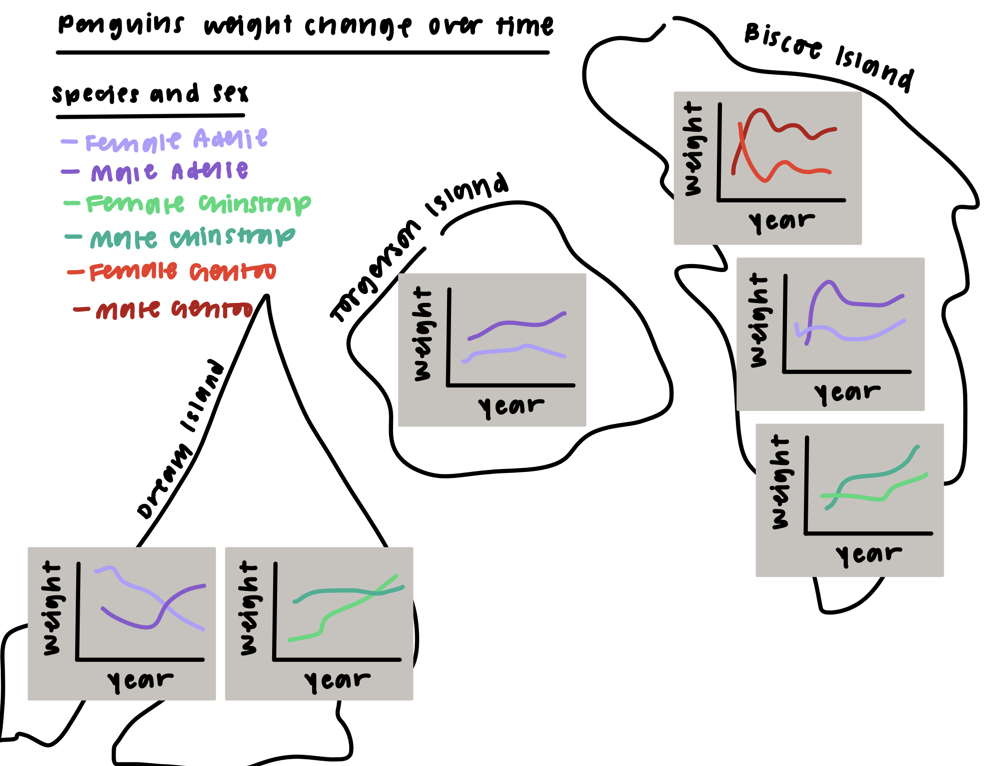 Penguins weight change over time
Species and Sex
- Female Adelie
- Male Adelie
- Female Chinstrap
- Male Chinstrap
- Female Gentoo
- Male Gentoo
Biscoe Island
weight
year
weight
year
weight
year
Torgerson Island
weight
year
Dream Island
weight
year
weight
year